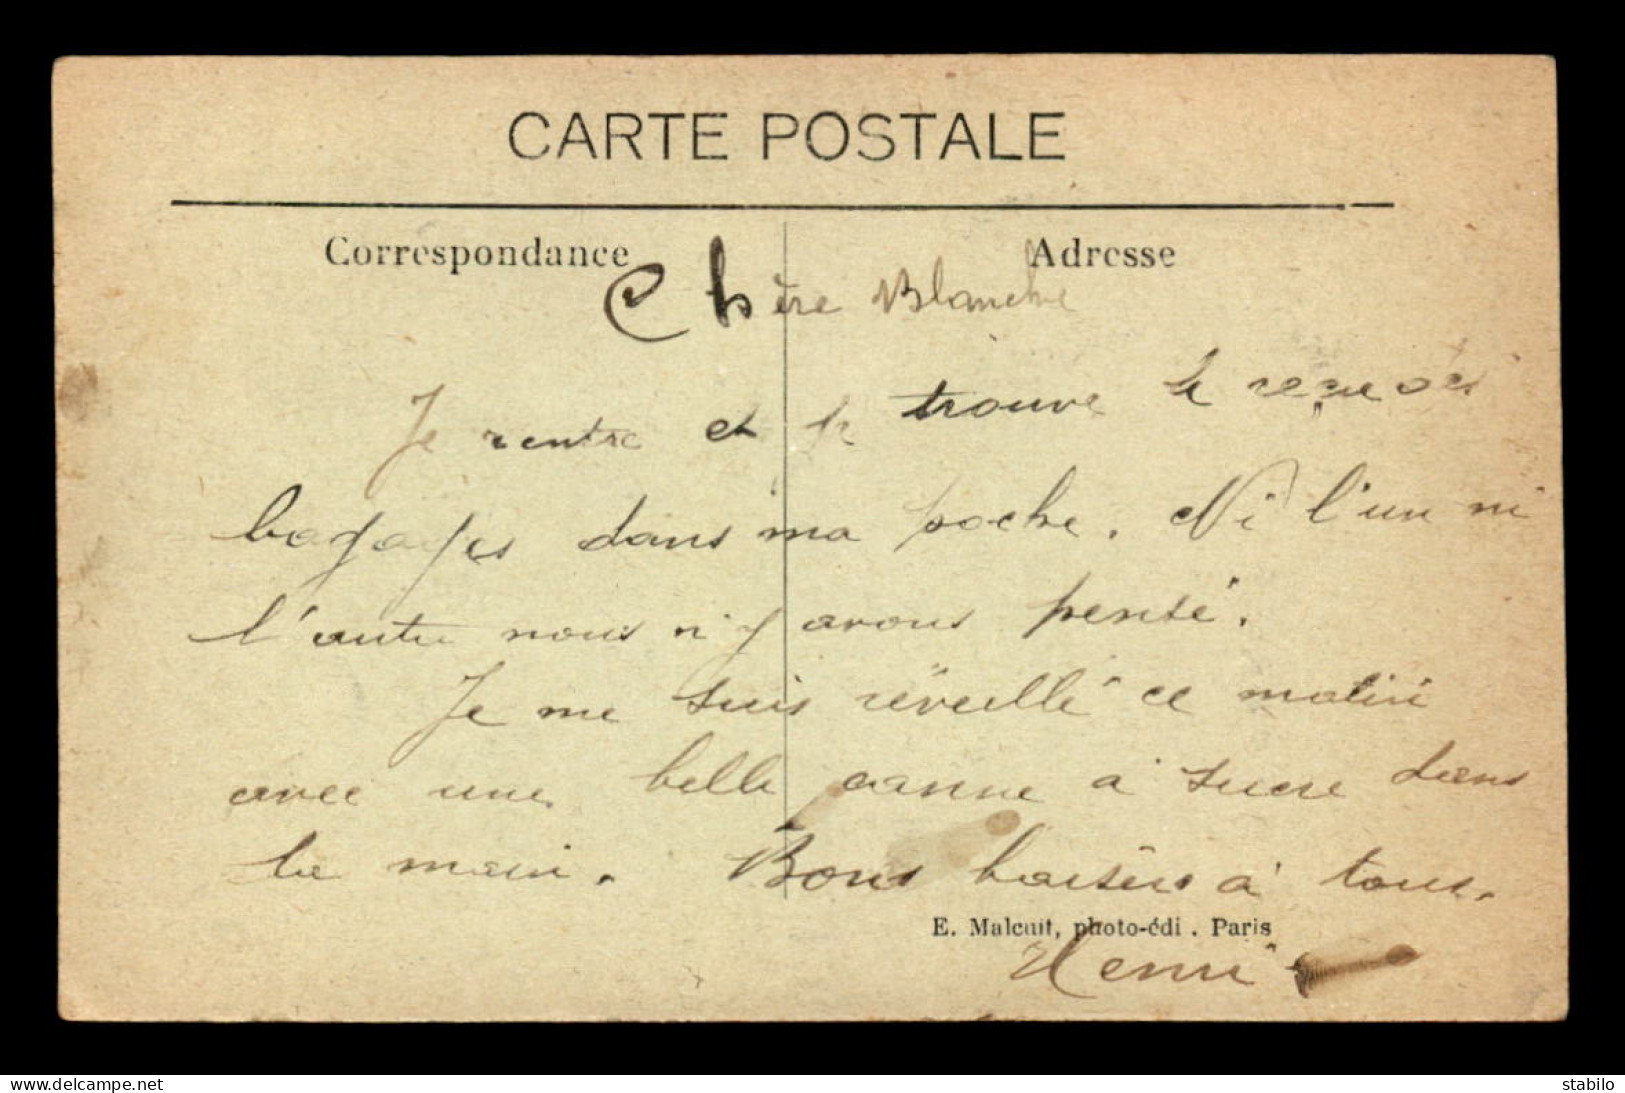 CARTE POSTALE
Correspondance
Adresse
Chère Blanche
Je rentre et je trouve le reçu des
bagages dans ma poche. Ni l'un ni
l'autre nous n'y avons pensé.
Je me suis réveillé ce matin
avec une belle canne à sucre dans
la main. Bons baisers à tous.
E. Malcuit, photo-édi . Paris
Henri
www.delcampe.net
stabilo